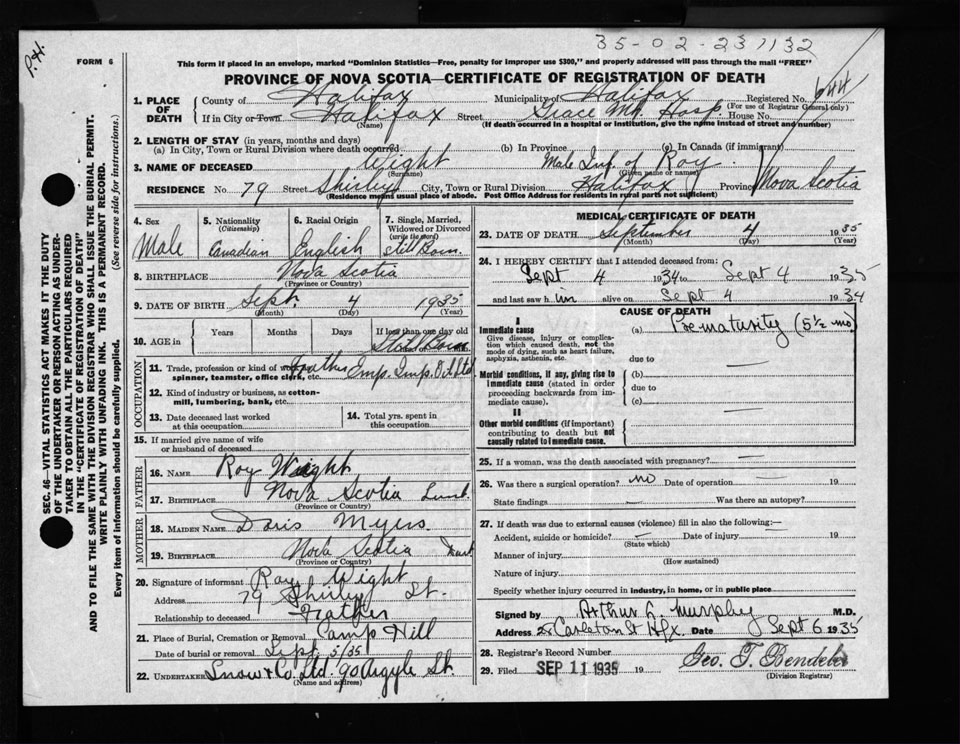 35-02-237132
P.H.
FORM 6
This form if placed in an envelope, marked "Dominion Statistics—Free, penalty for improper use $300," and properly addressed will pass through the mail "FREE"
PROVINCE OF NOVA SCOTIA—CERTIFICATE OF REGISTRATION OF DEATH
1. PLACE OF DEATH
County of Halifax Municipality of Halifax Registered No. 644
(For use of Registrar General only)
If in City or Town Halifax Street Grace Mt Hosp. House No.
(Name) (If death occurred in a hospital or institution, give the name instead of street and number)
2. LENGTH OF STAY (in years, months and days)
(a) In City, Town or Rural Division where death occurred (b) In Province (c) In Canada (if immigrant)
3. NAME OF DECEASED Wight Male Inf. of Roy
(Surname) (Given name or names)
RESIDENCE No 79 Street Shirley City, Town or Rural Division Halifax Province Nova Scotia
(Residence means usual place of abode. Post Office Address for residents in rural parts not sufficient)
4. Sex Male
5. Nationality (Citizenship) Canadian
6. Racial Origin English
7. Single, Married, Widowed or Divorced (write the word) Still Born.
8. BIRTHPLACE Nova Scotia
(Province or Country)
9. DATE OF BIRTH Sept. 4 1935
(Month) (Day) (Year)
10. AGE in Years Months Days If less than one day old
Still Born
OCCUPATION
11. Trade, profession or kind of work as spinner, teamster, office clerk, etc. Father Emp. Imp. Oil Ltd
12. Kind of industry or business, as cotton-mill, lumbering, bank, etc.
13. Date deceased last worked at this occupation
14. Total yrs. spent in this occupation
15. If married give name of wife or husband of deceased
FATHER
16. NAME Roy Wight
17. BIRTHPLACE Nova Scotia Lunb.
(Province or Country)
MOTHER
18. MAIDEN NAME Doris Myers.
19. BIRTHPLACE Nova Scotia
(Province or Country)
20. Signature of informant Roy Wight
Address 79 Shirley St.
Relationship to deceased Father
21. Place of Burial, Cremation or Removal Camp Hill
Date of burial or removal Sept 5/35
22. UNDERTAKER Snow & Co. Ltd. 90 Argyle St.
(Name and address)
MEDICAL CERTIFICATE OF DEATH
23. DATE OF DEATH September 4 1935
(Month) (Day) (Year)
24. I HEREBY CERTIFY that I attended deceased from:
Sept 4 1934 to Sept 4 1935
and last saw him alive on Sept 4 1934
CAUSE OF DEATH
I
Immediate cause
Give disease, injury or complication which caused death, not the mode of dying, such as heart failure, asphyxia, asthenia, etc.
(a) Prematurity (5½ mo)
due to —
Morbid conditions, if any, giving rise to immediate cause (stated in order proceeding backwards from immediate cause).
(b) —
due to
(c) —
II
Other morbid conditions (important) contributing to death but not causally related to immediate cause.
25. If a woman, was the death associated with pregnancy? —
26. Was there a surgical operation? no Date of operation — 19
State findings — Was there an autopsy?
27. If death was due to external causes (violence) fill in also the following:—
Accident, suicide or homicide? — Date of injury 19
(State which)
Manner of injury
(How sustained)
Nature of injury
Specify whether injury occurred in industry, in home, or in public place
Signed by Arthur L. Murphy M.D.
Address 28 Carleton St Hfx Date Sept 6 1935
28. Registrar's Record Number
29. Filed SEP 11 1935 19 Geo. T. Bendeleh
(Division Registrar)
SEC. 46—VITAL STATISTICS ACT MAKES IT THE DUTY
OF THE UNDERTAKER OR PERSON ACTING AS UNDER-
TAKER TO OBTAIN ALL THE PARTICULARS REQUIRED
IN THE "CERTIFICATE OF REGISTRATION OF DEATH"
AND TO FILE THE SAME WITH THE DIVISION REGISTRAR WHO SHALL ISSUE THE BURIAL PERMIT.
WRITE PLAINLY WITH UNFADING INK. THIS IS A PERMANENT RECORD.
Every item of information should be carefully supplied. (See reverse side for instructions.)